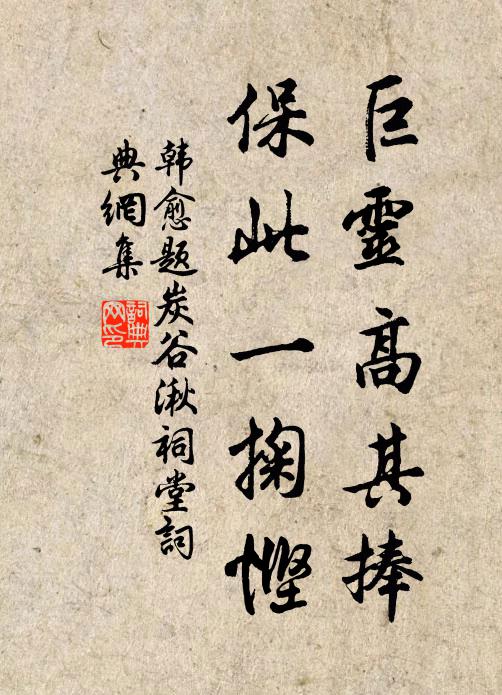 巨靈高其捧
保此一掬慳
韩愈题炭谷湫祠堂詞
典網集
詞典網印